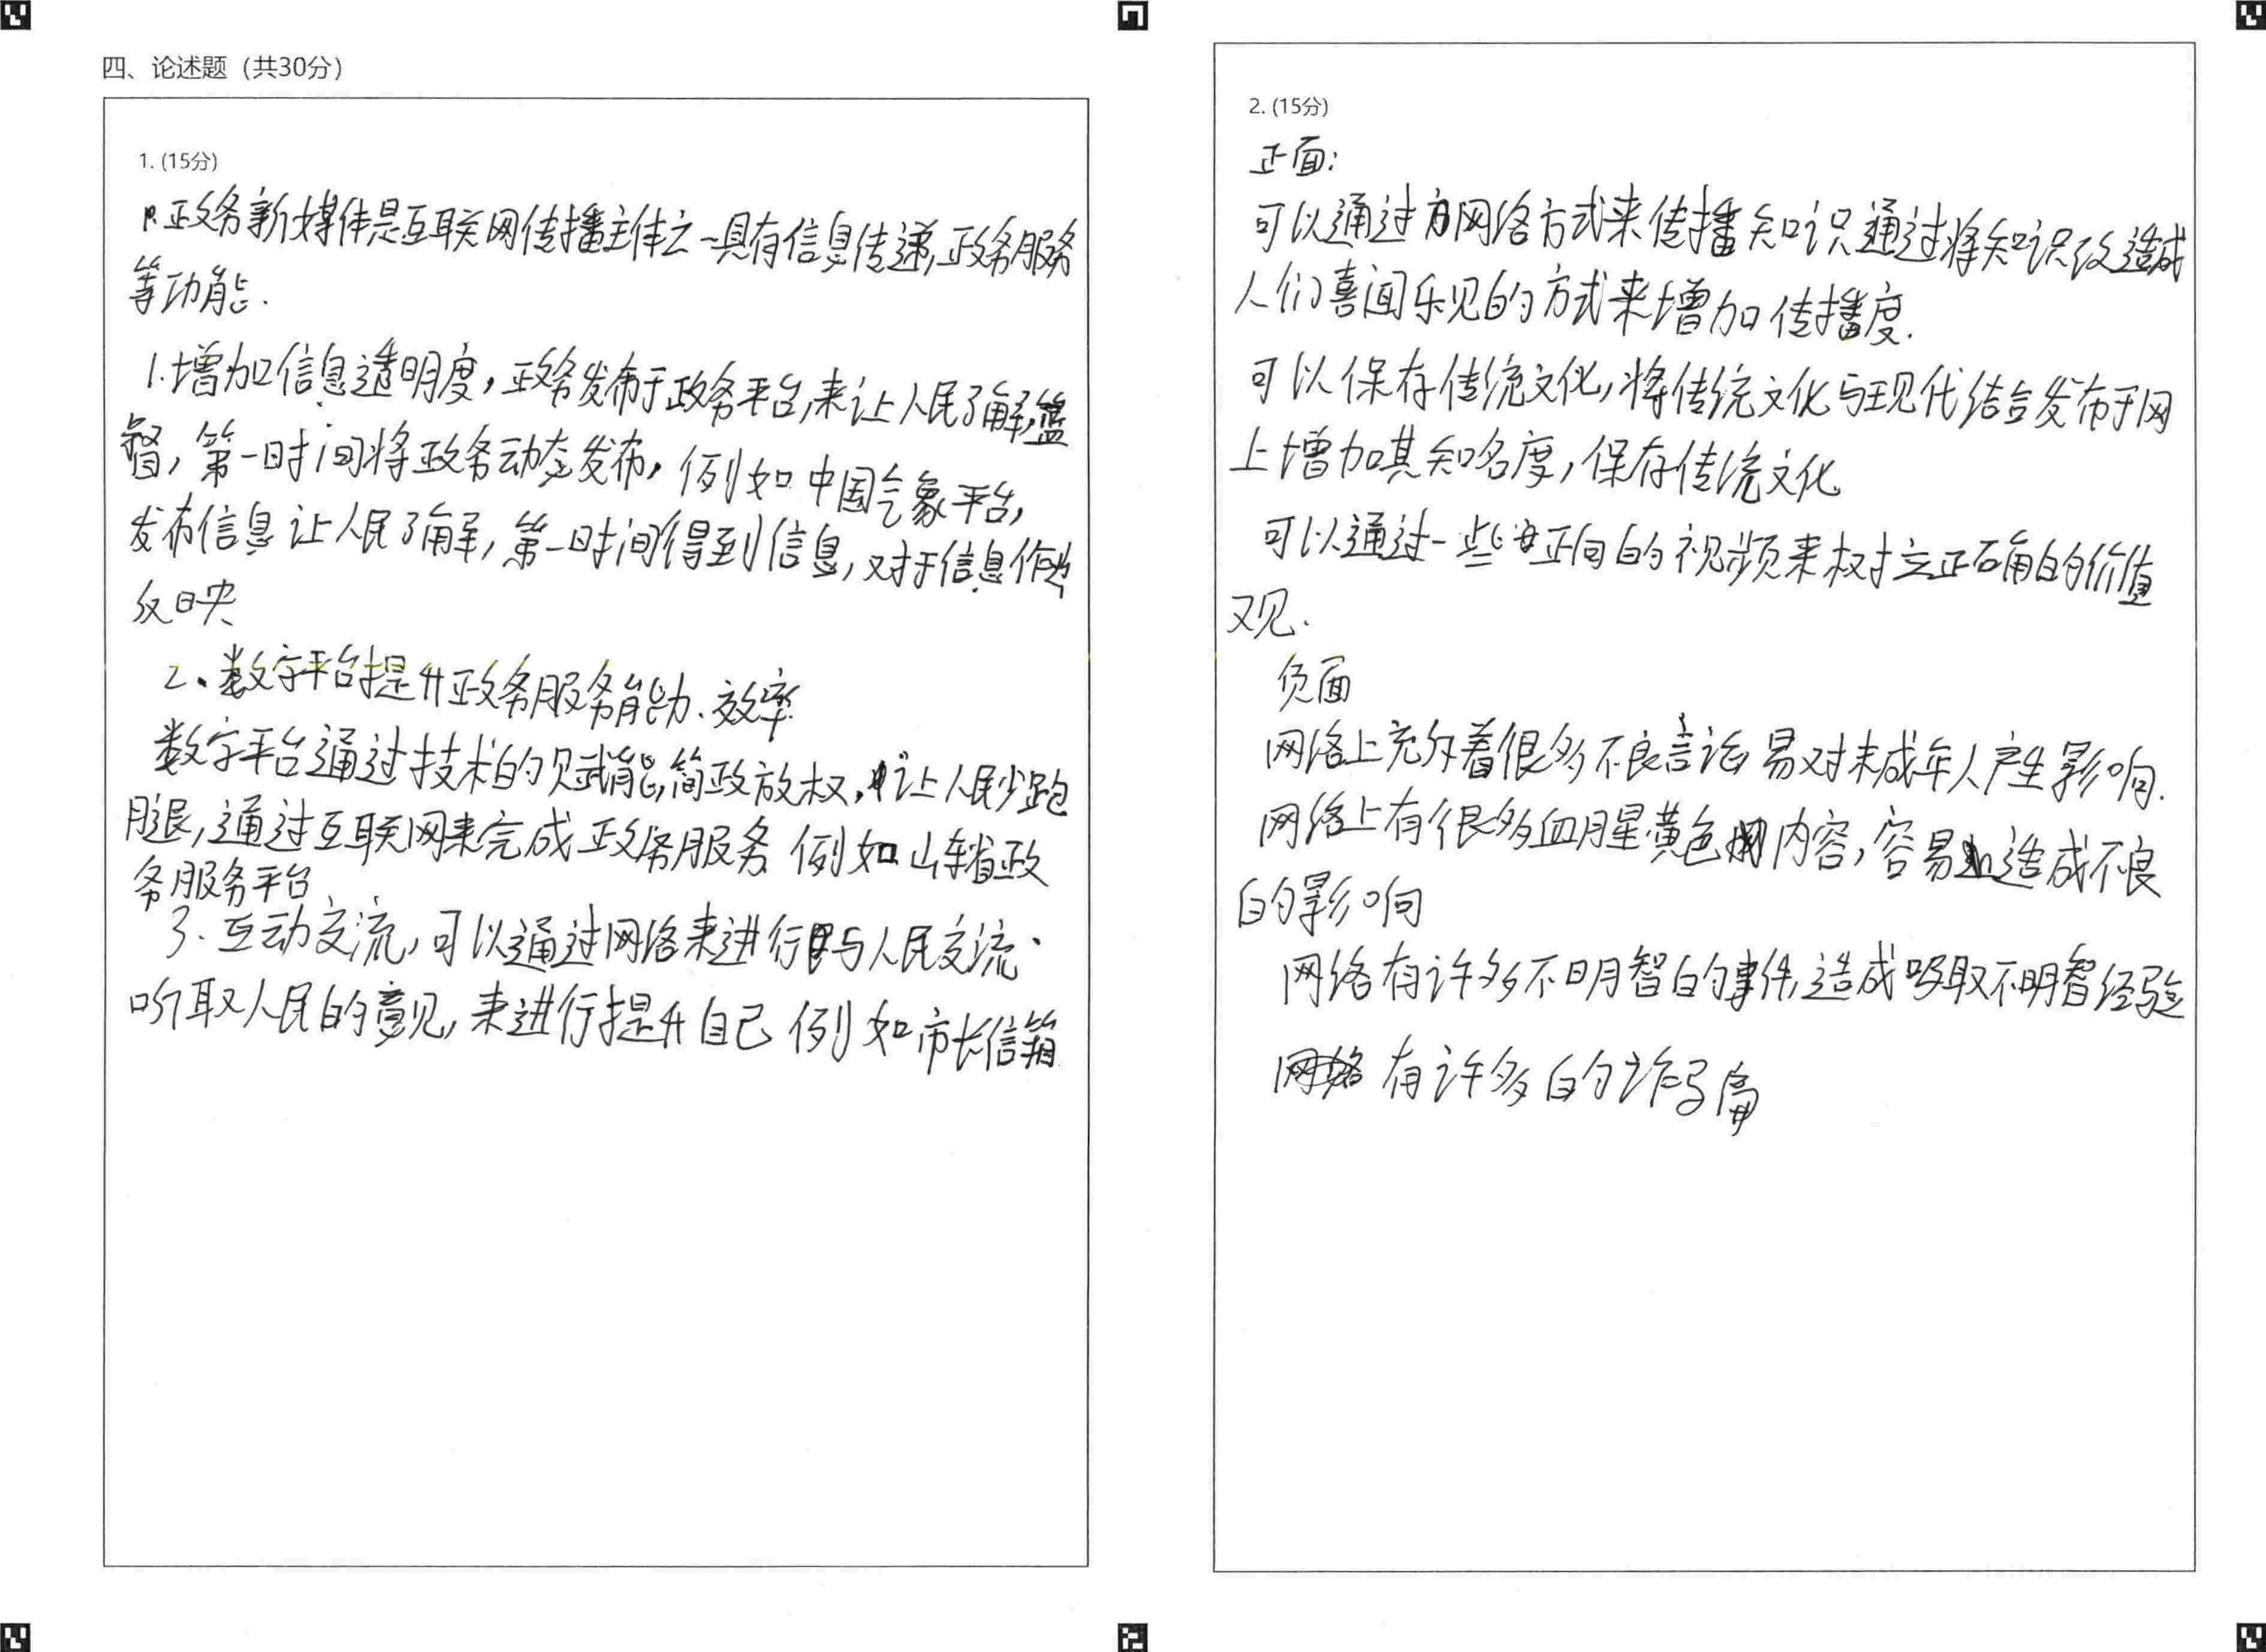 四、论述题（共30分）
1. (15分)
政务新媒体是互联网传播主体之一具有信息传递,政务服务
等功能.
1.增加信息透明度,政务发布于政务平台,来让人民了解,篮
督,第一时间将政务动态发布,例如中国气象平台,
发布信息让人民了解,第一时间得到信息,对于信息作出
反映
2、数字平台提升政务服务能力、效率
数字平台通过技术的赋能,简政放权,让人民少跑
腿,通过互联网来完成政务服务 例如山东省政
务服务平台
3、互动交流,可以通过网络来进行与人民交流.
听取人民的意见,来进行提升自己 例如市长信箱
2. (15分)
正面:
可以通过网络方式来传播知识通过将知识改造成
人们喜闻乐见的方式来增加传播度.
可以保存传统文化,将传统文化与现代结合发布于网
上增加其知名度,保存传统文化
可以通过一些正向的视频来树立正确的价值
观.
负面
网络上充斥着很多不良言论易对未成年人产生影响.
网络上有很多血腥黄色内容,容易造成不良
的影响
网络有许多不明智的事件,造成吸取不明智经验
网络有许多的诈骗